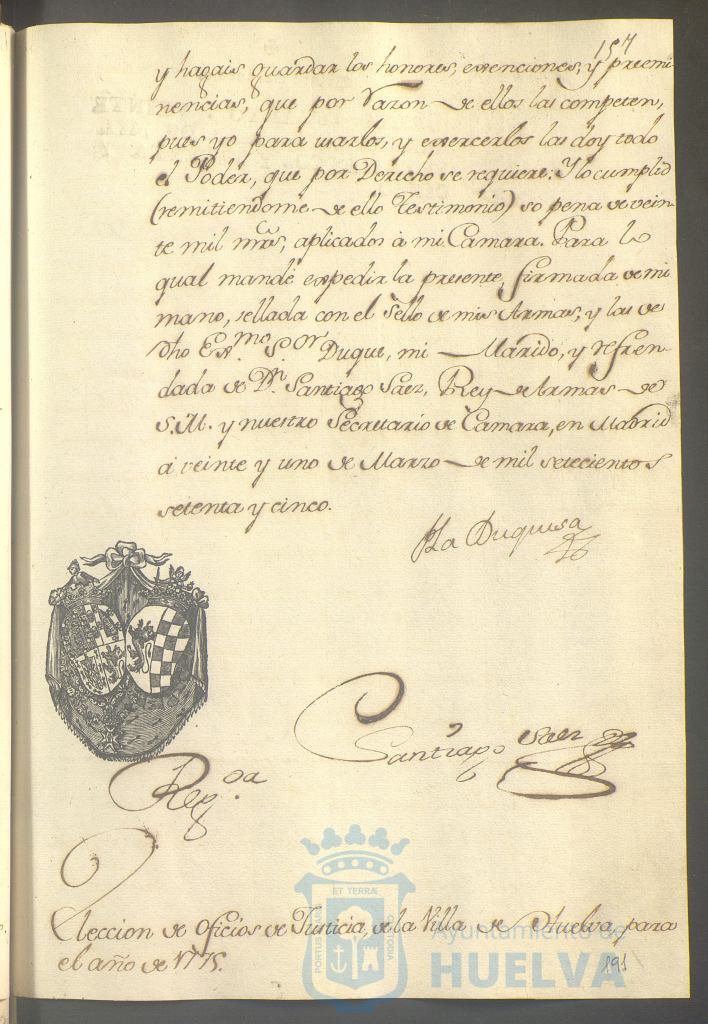 157
y hagais guardar los honores, exenciones, y preemi
nencias, que por razon de ellos las competen,
pues yo para usarlos, y exercerlos las doy todo
el Poder, que por Derecho se requiere. Y lo cumplid
(remitiendome de ello Testimonio) so pena de vein-
te mil mrs, aplicados à mi Camara. Para lo
qual mandé expedir la presente, firmada de mi
mano, sellada con el Sello de mis Armas, y las de
dho Ex.mo S.or Duque, mi Marido, y refren-
dada de Dn. Santiago Saez, Rey de Armas de
S. M. y nuestro Secretario de Camara, en Madrid
à veinte y uno de Marzo de mil setecientos
setenta y cinco.
La Duquesa
Santiago Saez
Reg.da
Eleccion de Oficios de Justicia, de la Villa de Huelva, para
el año de 1775.
191
ET TERRÆ
PORTUS MARIS
CUSTODIA
Ayuntamiento de
HUELVA